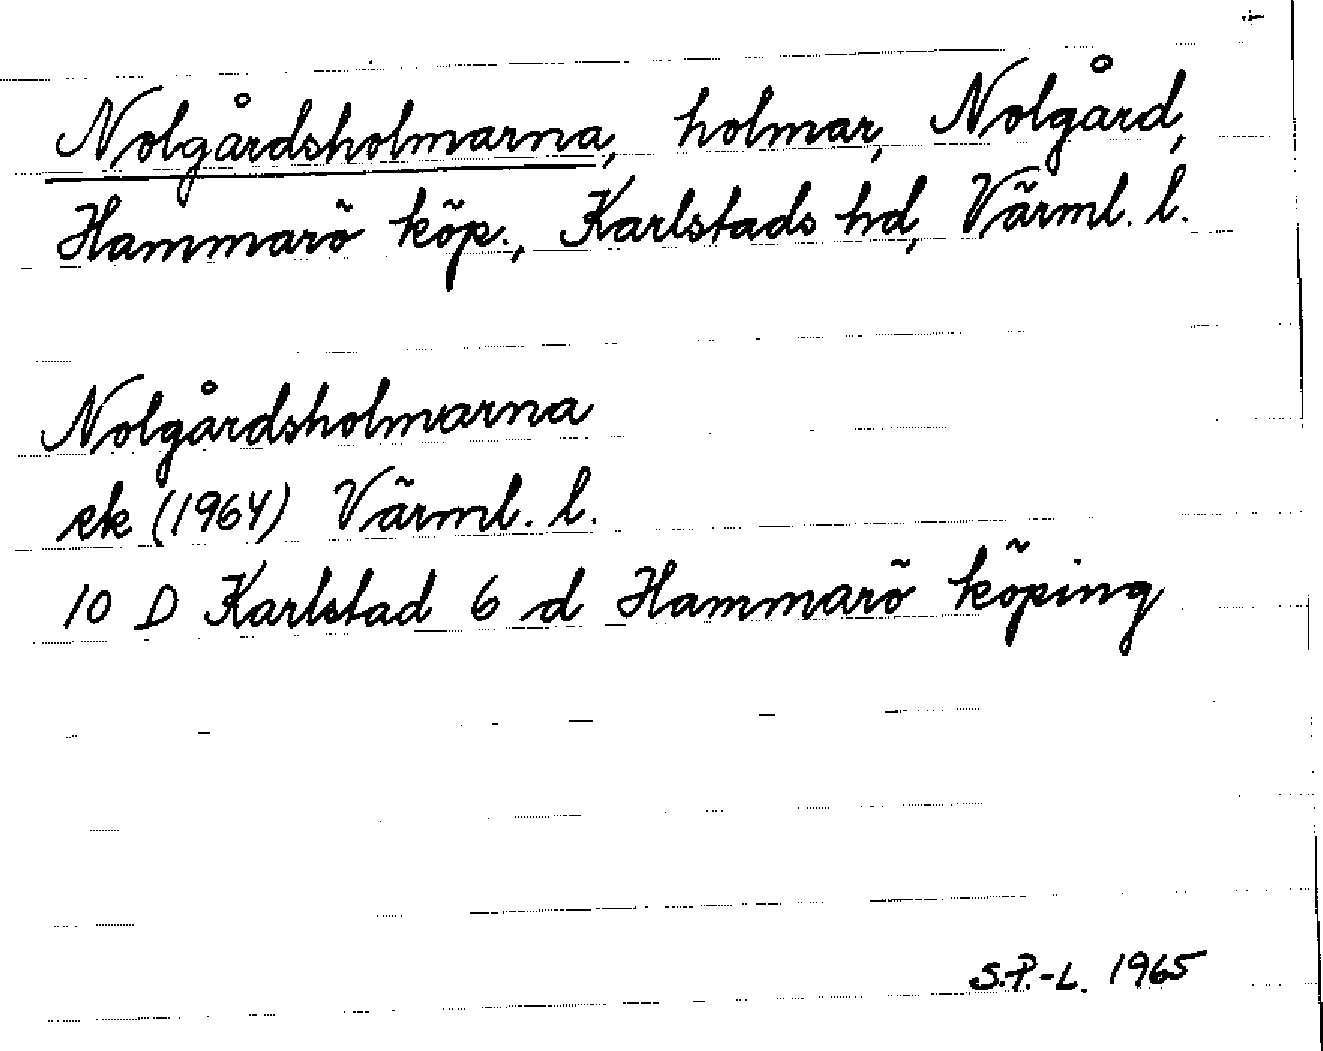 Nolgårdsholmarna, holmar, Nolgård,
Hammarö köp., Karlstads hd, Värml. l.
Nolgårdsholmarna
ek (1964) Värml. l.
10 D Karlstad 6 d Hammarö köping
S.P.-L. 1965